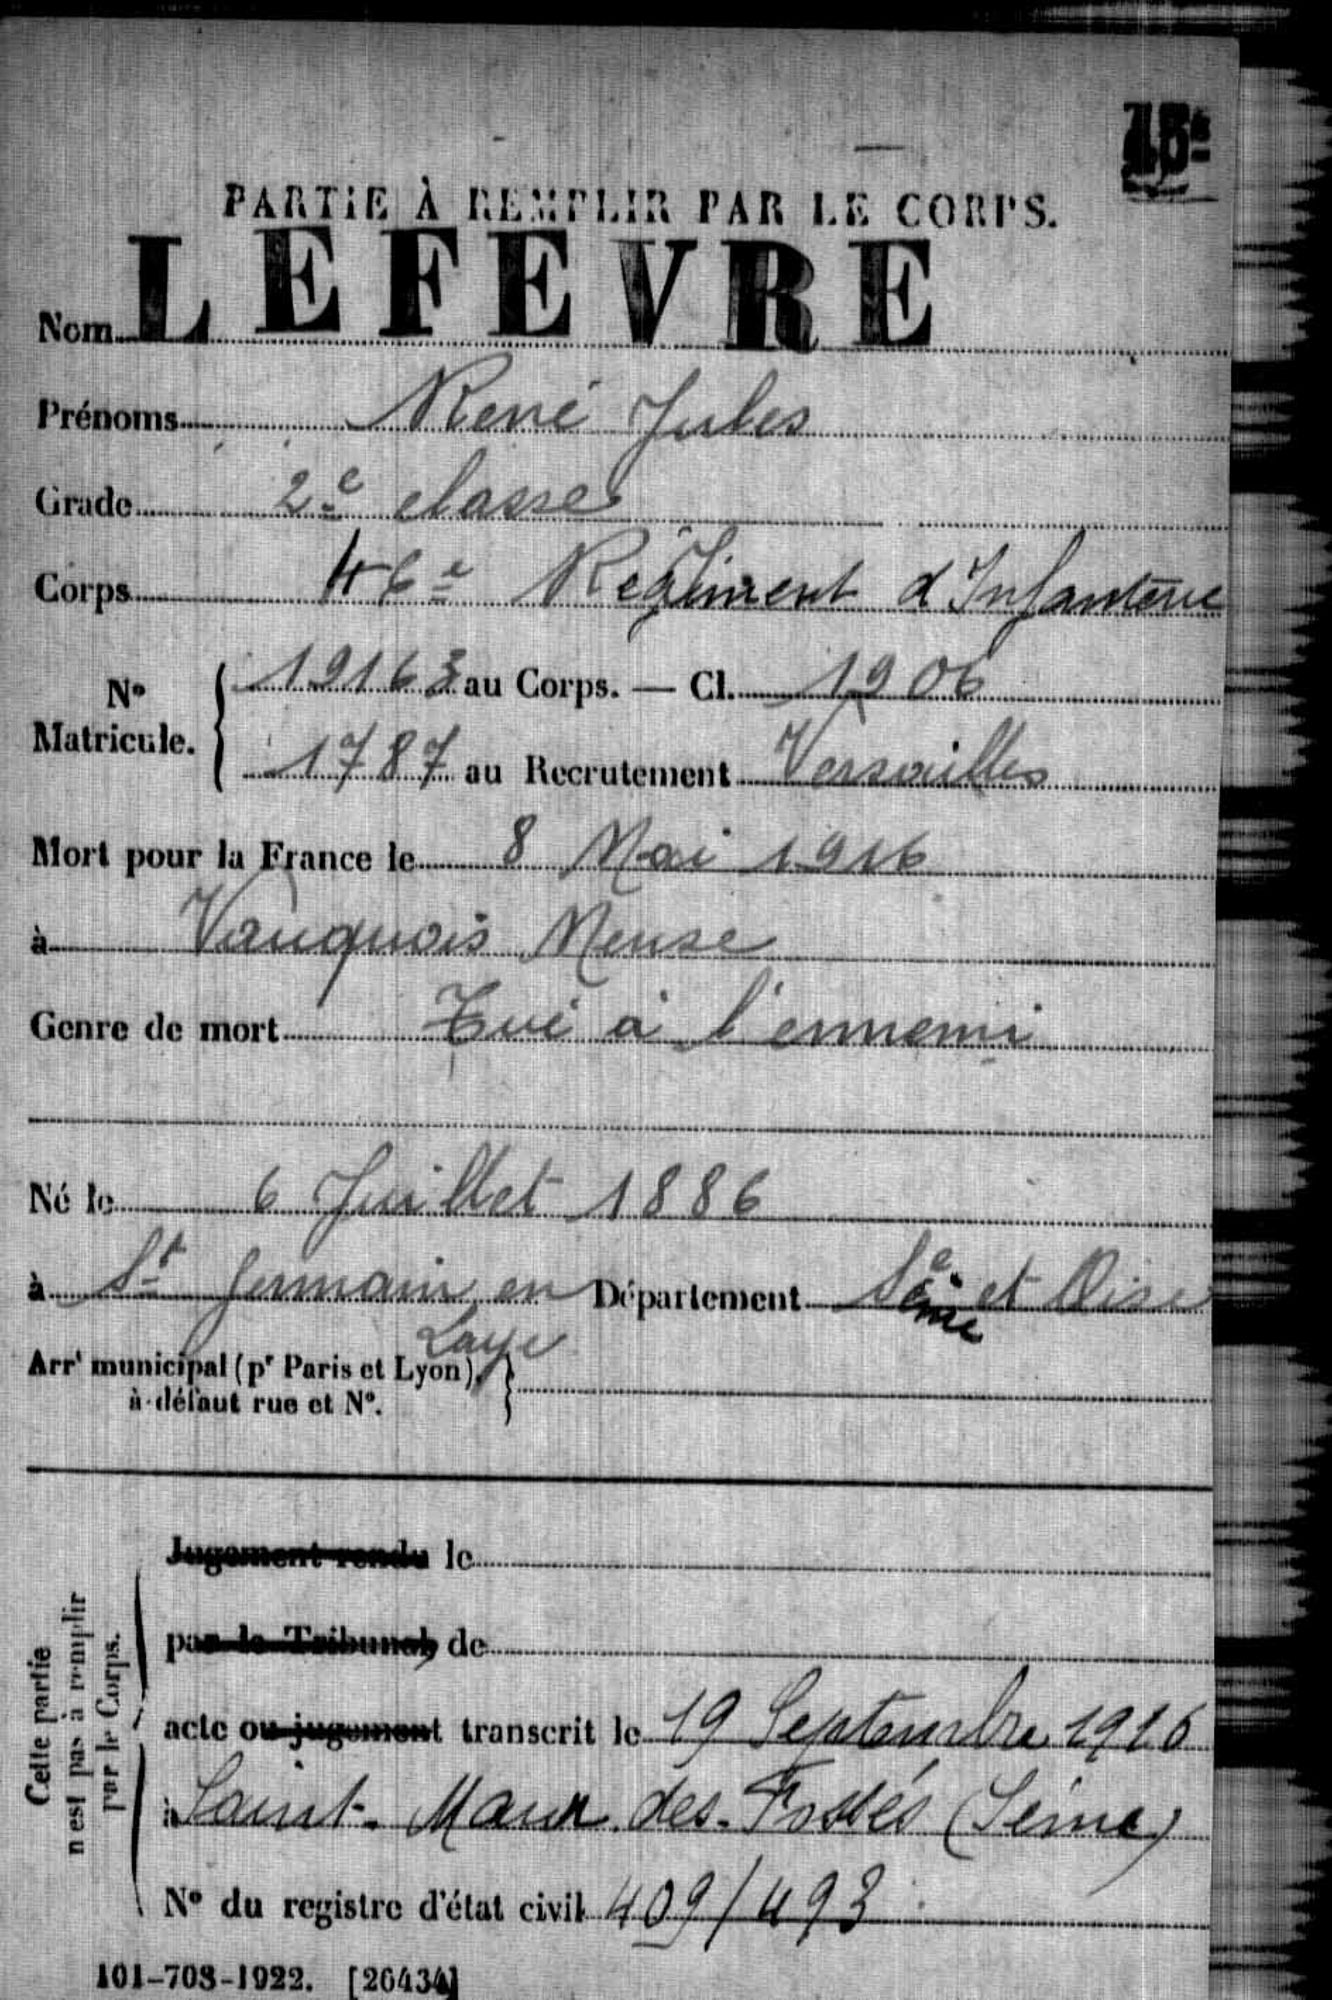 PARTIE À REMPLIR PAR LE CORPS.
Nom LEFEVRE
Prénoms René Jules
Grade 2e classe
Corps 46e Régiment d'Infanterie
No Matricule. { 19163 au Corps. — Cl. 1906
1787 au Recrutement Versailles
Mort pour la France le 8 Mai 1916
à Vauquois Meuse
Genre de mort Tué à l'ennemi
Né le 6 Juillet 1886
à St Germain en Laye Département Sne et Oise
Arrt municipal (pr Paris et Lyon), à défaut rue et No. }
Cette partie n'est pas à remplir par le Corps.
Jugement rendu le
par le Tribunal de
acte ou jugement transcrit le 19 Septembre 1916
à Saint-Maur-des-Fossés (Seine)
No du registre d'état civil 409/493
101-708-1922. [26434]